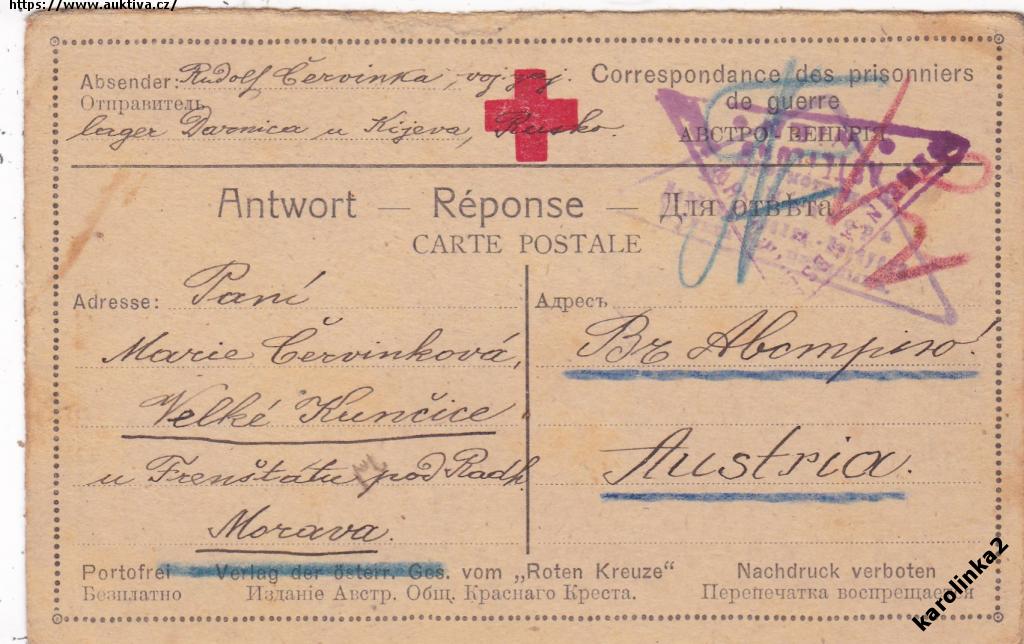 https://www.auktiva.cz/
Absender: Rudolf Červinka, voj. zaj.
Отправитель
lager Darnica u Kijeva, Rusko.
Correspondance des prisonniers
de guerre
АВСТРО-ВЕНГРІЯ
Antwort — Réponse — Для отвѣта
CARTE POSTALE
Adresse: Paní
Marie Červinková,
Velké Kunčice
u Frenštátu pod Radh.
Morava.
Адресъ
Въ Австрію.
Austria.
Portofrei Verlag der österr. Ges. vom „Roten Kreuze" Nachdruck verboten
Безплатно Изданіе Австр. Общ. Краснаго Креста. Перепечатка воспрещается
karolinka2